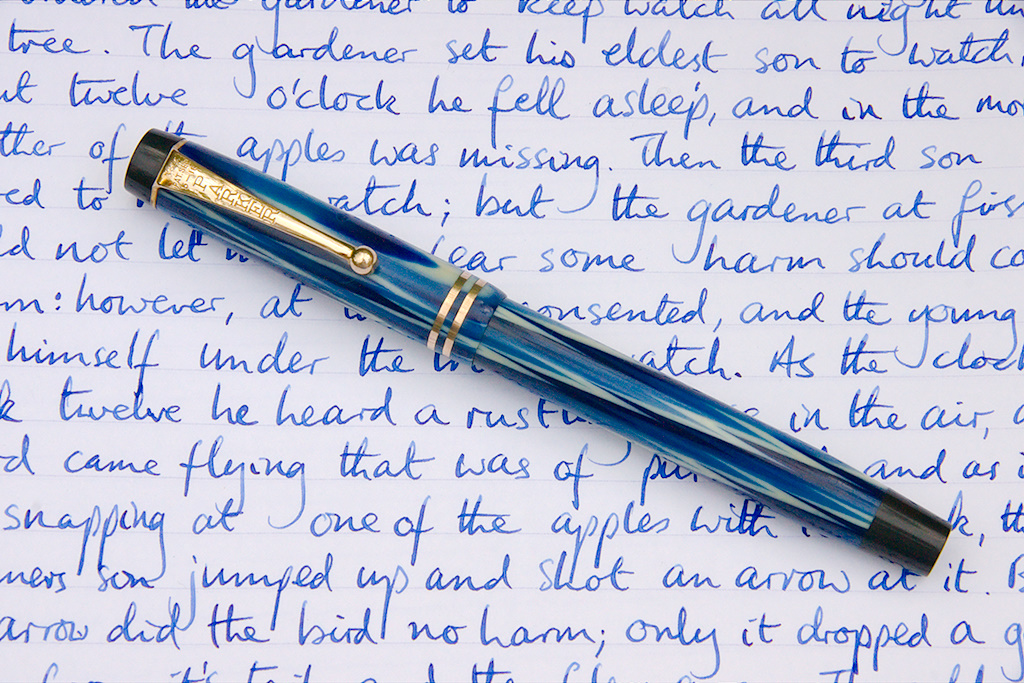 the gardener to keep watch all night
tree. The gardener set his eldest son to watch,
twelve o'clock he fell asleep, and in the
of apples was missing. Then the third son
to watch; but the gardener at
not let some harm should
however, at consented, and the young
himself under the watch. As the
twelve he heard a in the air,
came flying that was of and as
snapping at one of the apples with
son jumped up and shot an arrow at it.
arrow did the bird no harm; only it dropped a
it's tail, and the
PARKER